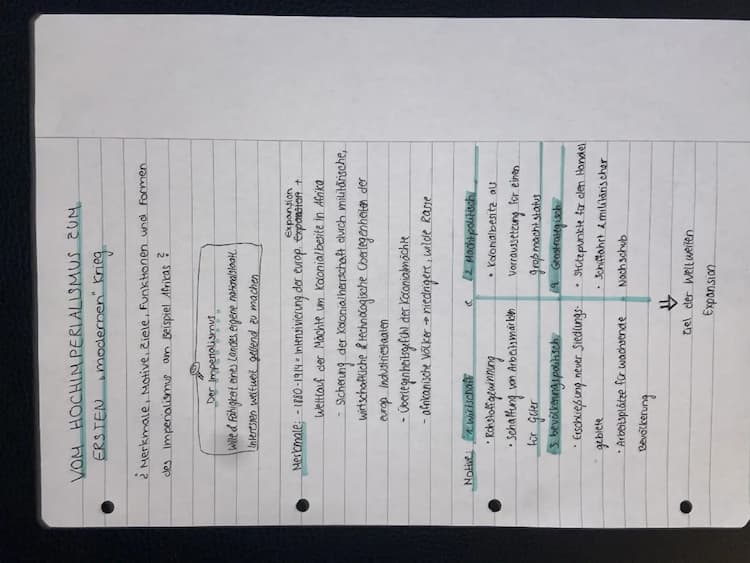 VOM HOCHIMPERIALISMUS ZUM
ERSTEN "modernen" Krieg
¿ Merkmale, Motive, Ziele, Funktionen und Formen
des Imperialismus am Beispiel Afrikas ?
Der Imperialismus
Wille & Fähigkeit eines Landes eigene nationalstaatl.
Interessen weltweit geltend zu machen
Expansion
Merkmale: - 1880-1914 = Intensivierung der europ. Expansion +
Wettlauf der Mächte um Kolonialbesitz in Afrika
- Sicherung der Kolonialherrschaft durch militärische,
wirtschaftliche & technologische Überlegenheiten der
europ. Industriestaaten
- Überlegenheitsgefühl der Kolonialmächte
- afrikanische Völker → niedrigere, wilde Rasse
Motive: 1. wirtschaftl.
• Rohstoffgewinnung
• Schaffung von Arbeitsmärkten
für Güter
2. Machtpolitisch
• Kolonialbesitz als
Vorraussetzung für einen
großmachtstatus
3. bevölkerungspolitisch
• Erschließung neuer Siedlungs-
gebiete
• Arbeitsplätze für wachsende
Bevölkerung
4. Geostrategisch
• Stützpunkte für den Handel
• Schifffahrt & militärischer
Nachschub
⇓
Ziel der weltweiten
Expansion